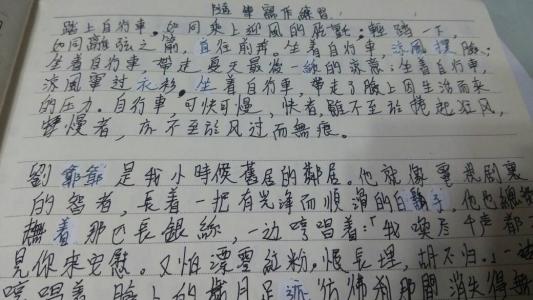 隨筆寫作練習
踏上自行車，如同乘上迎風的
如同離弦之箭，直往前奔。坐着自行車，涼風撲臉；
坐着自行車，帶走夏天最後一絲的涼意；坐着自行車，
涼風穿过衣衫。坐着自行車，帶走了臉上因生活而來
的压力。自行車，可快可慢，快者，雖不至於捲起狂风，
慢者，亦不至於风过而無痕。
劉爺爺是我小時候舊居的鄰居。他就像電視剧裏
的智者，長着一把有光泽而順滑的白鬍子，他也總
撫着那巴長銀絲，一边哼唱着：「我喚左千声都
見你來安慰。又怕漂零紅粉，恨長埋，胡不归。」一边
哼唱着，臉上的歲月足迹彷彿剎那間消失得無